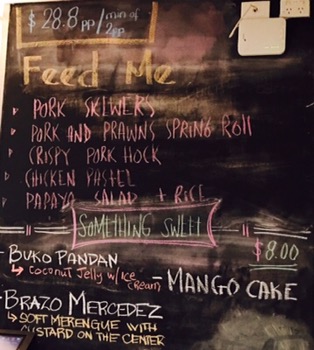 $ 28.8 pp / min of 2pp
Feed Me
PORK SKEWERS
PORK AND PRAWNS SPRING ROLL
CRISPY PORK HOCK
CHICKEN PASTEL
PAPAYA SALAD + RICE
SOMETHING SWEET
$8.00
BUKO PANDAN
→ Coconut Jelly w/ Ice Cream
- MANGO CAKE
- BRAZO MERCEDEZ
→ SOFT MERENGUE WITH
CUSTARD ON THE CENTER